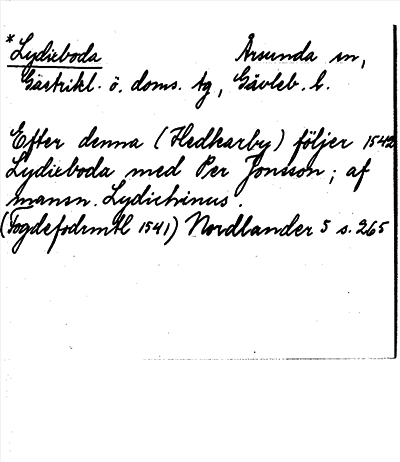 *Lydieboda Årsunda sn,
Gästrikl. ö. doms. tg, Gävleb. l.
Efter denna (Hedkarby) följer 1542
Lydieboda med Per Jonsson; af
mansn. Lydichinus.
(Fogdefodrmtl 1541) Nordlander 5 s. 265